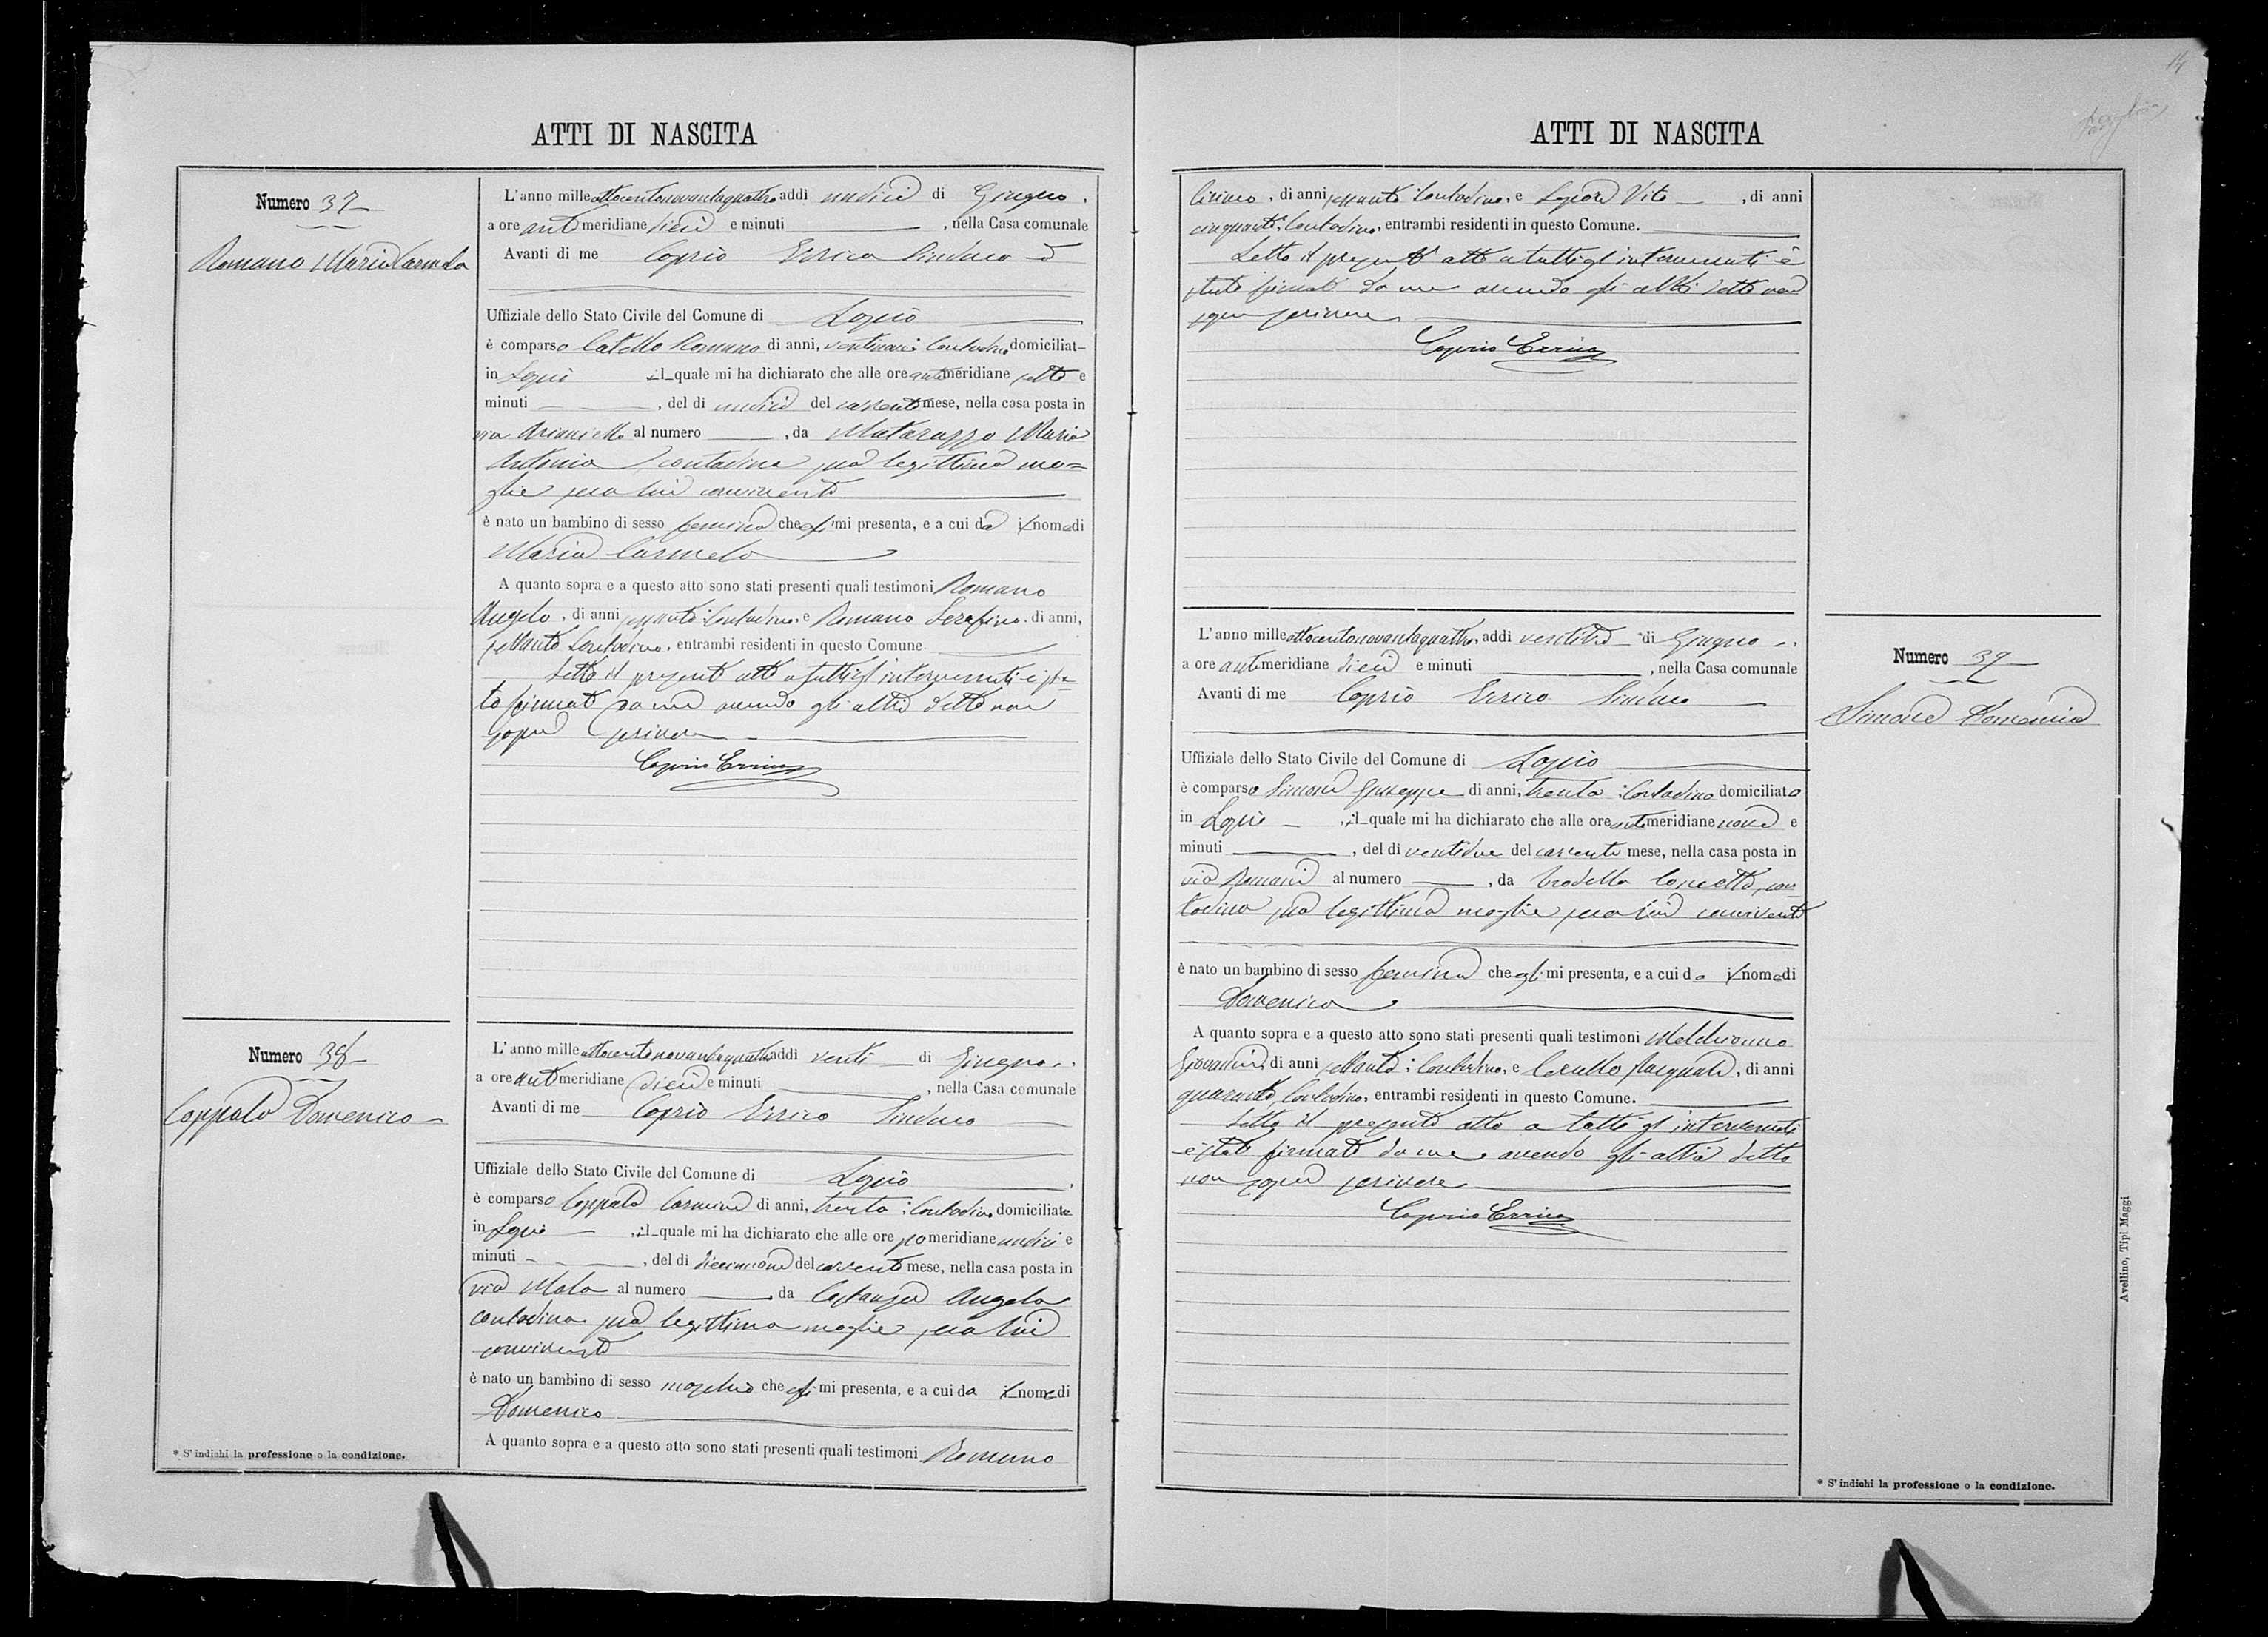 ATTI DI NASCITA
Numero 37
Romano Maria Carmela
L'anno milleottocentonovantaquattro, addì undici di Giugno,
a ore antimeridiane dieci e minuti , nella Casa comunale
Avanti di me Caprio Errico Sindaco
Uffiziale dello Stato Civile del Comune di Lapio
è comparso Catello Romano di anni, ventinove: Contadino domiciliat
in Lapio il quale mi ha dichiarato che alle ore antimeridiane sette e
minuti , del dì undici del corrente mese, nella casa posta in
via Arianiello al numero , da Matarazzo Maria
Antonia contadina sua legittima mo=
glie seco lui convivente
è nato un bambino di sesso femina che egli mi presenta, e a cui da il nome di
Maria Carmela
A quanto sopra e a questo atto sono stati presenti quali testimoni Romano
Angelo, di anni sessanta: Contadino, e Romano Serafino, di anni,
settanta Contadino, entrambi residenti in questo Comune.
Letto il presente atto a tutti gl'intervenuti è sta=
to firmato da me avendo gli altri detto non
saper scrivere
Caprio Errico
Numero 38
Coppola Domenico
L'anno milleottocentonovantaquattro addì venti di Giugno,
a ore antimeridiane dieci e minuti , nella Casa comunale
Avanti di me Caprio Errico Sindaco
Uffiziale dello Stato Civile del Comune di Lapio
è comparso Coppola Carmine di anni, trenta: Contadino domiciliato
in Lapio , il quale mi ha dichiarato che alle ore pomeridiane undici e
minuti , del dì diecinnove del corrente mese, nella casa posta in
via Mola al numero , da Costanza Angela
contadina sua legittima moglie seco lui
convivente
è nato un bambino di sesso maschio che egli mi presenta, e a cui da il nome di
Domenico
A quanto sopra e a questo atto sono stati presenti quali testimoni Romano
* S'indichi la professione o la condizione.
ATTI DI NASCITA
, di anni sessanta: Contadino, e Vito , di anni
cinquanta: Contadino, entrambi residenti in questo Comune.
Letto il presente atto a tutti gl'intervenuti è
stato firmato da me avendo gli altri detto non
saper scrivere
Caprio Errico
L'anno milleottocentonovantaquattro, addì ventitre di Giugno
a ore antimeridiane dieci e minuti , nella Casa comunale
Avanti di me Caprio Errico Sindaco
Uffiziale dello Stato Civile del Comune di Lapio
è comparso Simone Giuseppe di anni, trenta: Contadino domiciliato
in Lapio , il quale mi ha dichiarato che alle ore antimeridiane nove e
minuti , del dì ventidue del corrente mese, nella casa posta in
via Romani al numero , da Concetta, con
tadina sua legittima moglie seco lui convivente
è nato un bambino di sesso femina che egli mi presenta, e a cui da il nome di
Domenica
A quanto sopra e a questo atto sono stati presenti quali testimoni Melchionno
Giovanni, di anni settanta: Contadino, e Cerullo Pasquale, di anni
quaranta, Contadino, entrambi residenti in questo Comune.
Letto il presente atto a tutti gl'intervenuti
è stato firmato da me avendo gli altri detto
non saper scrivere
Caprio Errico
Numero 39
Simone Domenica
* S'indichi la professione o la condizione.
Avellino, Tipi Maggi